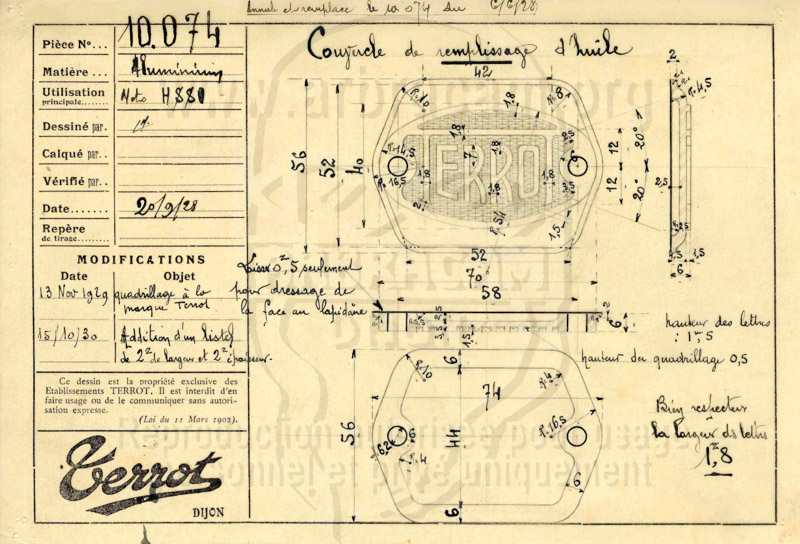 Annule et remplace le 10.074 du 6/6/28
Pièce No... 10.074
Matière... Aluminium
Utilisation principale... Moto HSSO
Dessiné par.
Calqué par.
Vérifié par.
Date... 20/9/28
Repère de tirage...
MODIFICATIONS
Date Objet
13 Nov 1929 quadrillage à la
marque Terrot
15/10/30 Addition d'un listel
de 2 de largeur et 2 d'épaisseur.
Ce dessin est la propriété exclusive des
Etablissements TERROT. Il est interdit d'en
faire usage ou de le communiquer sans autori-
sation expresse.
(Loi du 11 Mars 1902).
Terrot
DIJON
Couvercle de remplissage d'huile
42
2
R.10
R.8
1,8
R.4,5
56
52
40
TERROT
12
12
20°
20°
R.16,5
R.54
1,5
2,5
52
70
58
6
1,5
Laisser 0,5 seulement
pour dressage de
la face au lapidaire
6
hauteur des lettres
: 1,5
hauteur du quadrillage 0,5
R.10
6
74
R.4
56
44
R.16,5
R.4
6
6
Bien respecter
la largeur des lettres
1,8
www.arbracam.org
Reproduction autorisée pour usage
personnel et privé uniquement